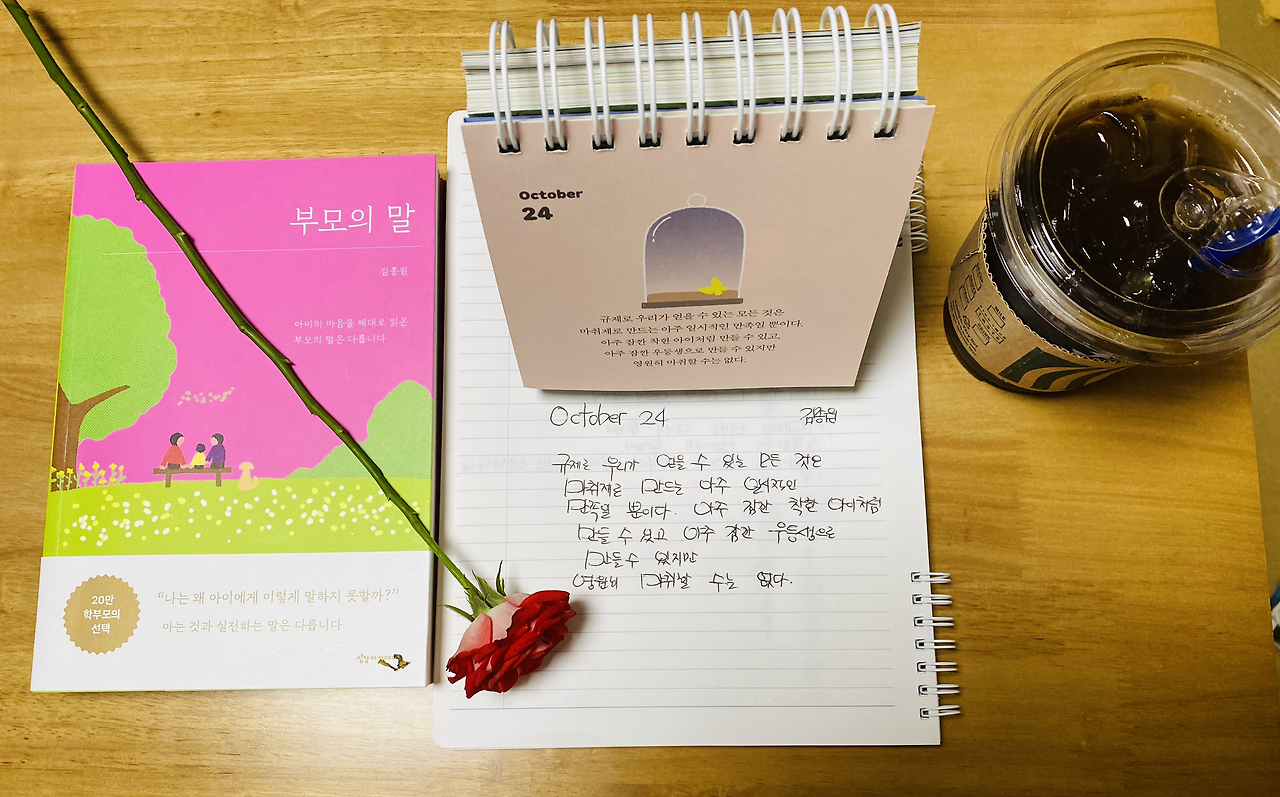 부모의 말
김종원
아이의 마음을 제대로 읽은
부모의 말은 다릅니다
20만
학부모의
선택
“나는 왜 아이에게 이렇게 말하지 못할까?”
아는 것과 실천하는 말은 다릅니다
October
24
규제로 우리가 얻을 수 있는 모든 것은
마취제로 만드는 아주 일시적인 만족일 뿐이다.
아주 잠깐 착한 아이처럼 만들 수 있고,
아주 잠깐 우등생으로 만들 수 있지만
영원히 마취할 수는 없다.
October 24 김종원
규제로 우리가 얻을 수 있는 모든 것은
마취제로 만드는 아주 일시적인
만족일 뿐이다. 아주 잠깐 착한 아이처럼
만들 수 있고 아주 잠깐 우등생으로
만들 수 있지만
영원히 마취할 수는 없다.